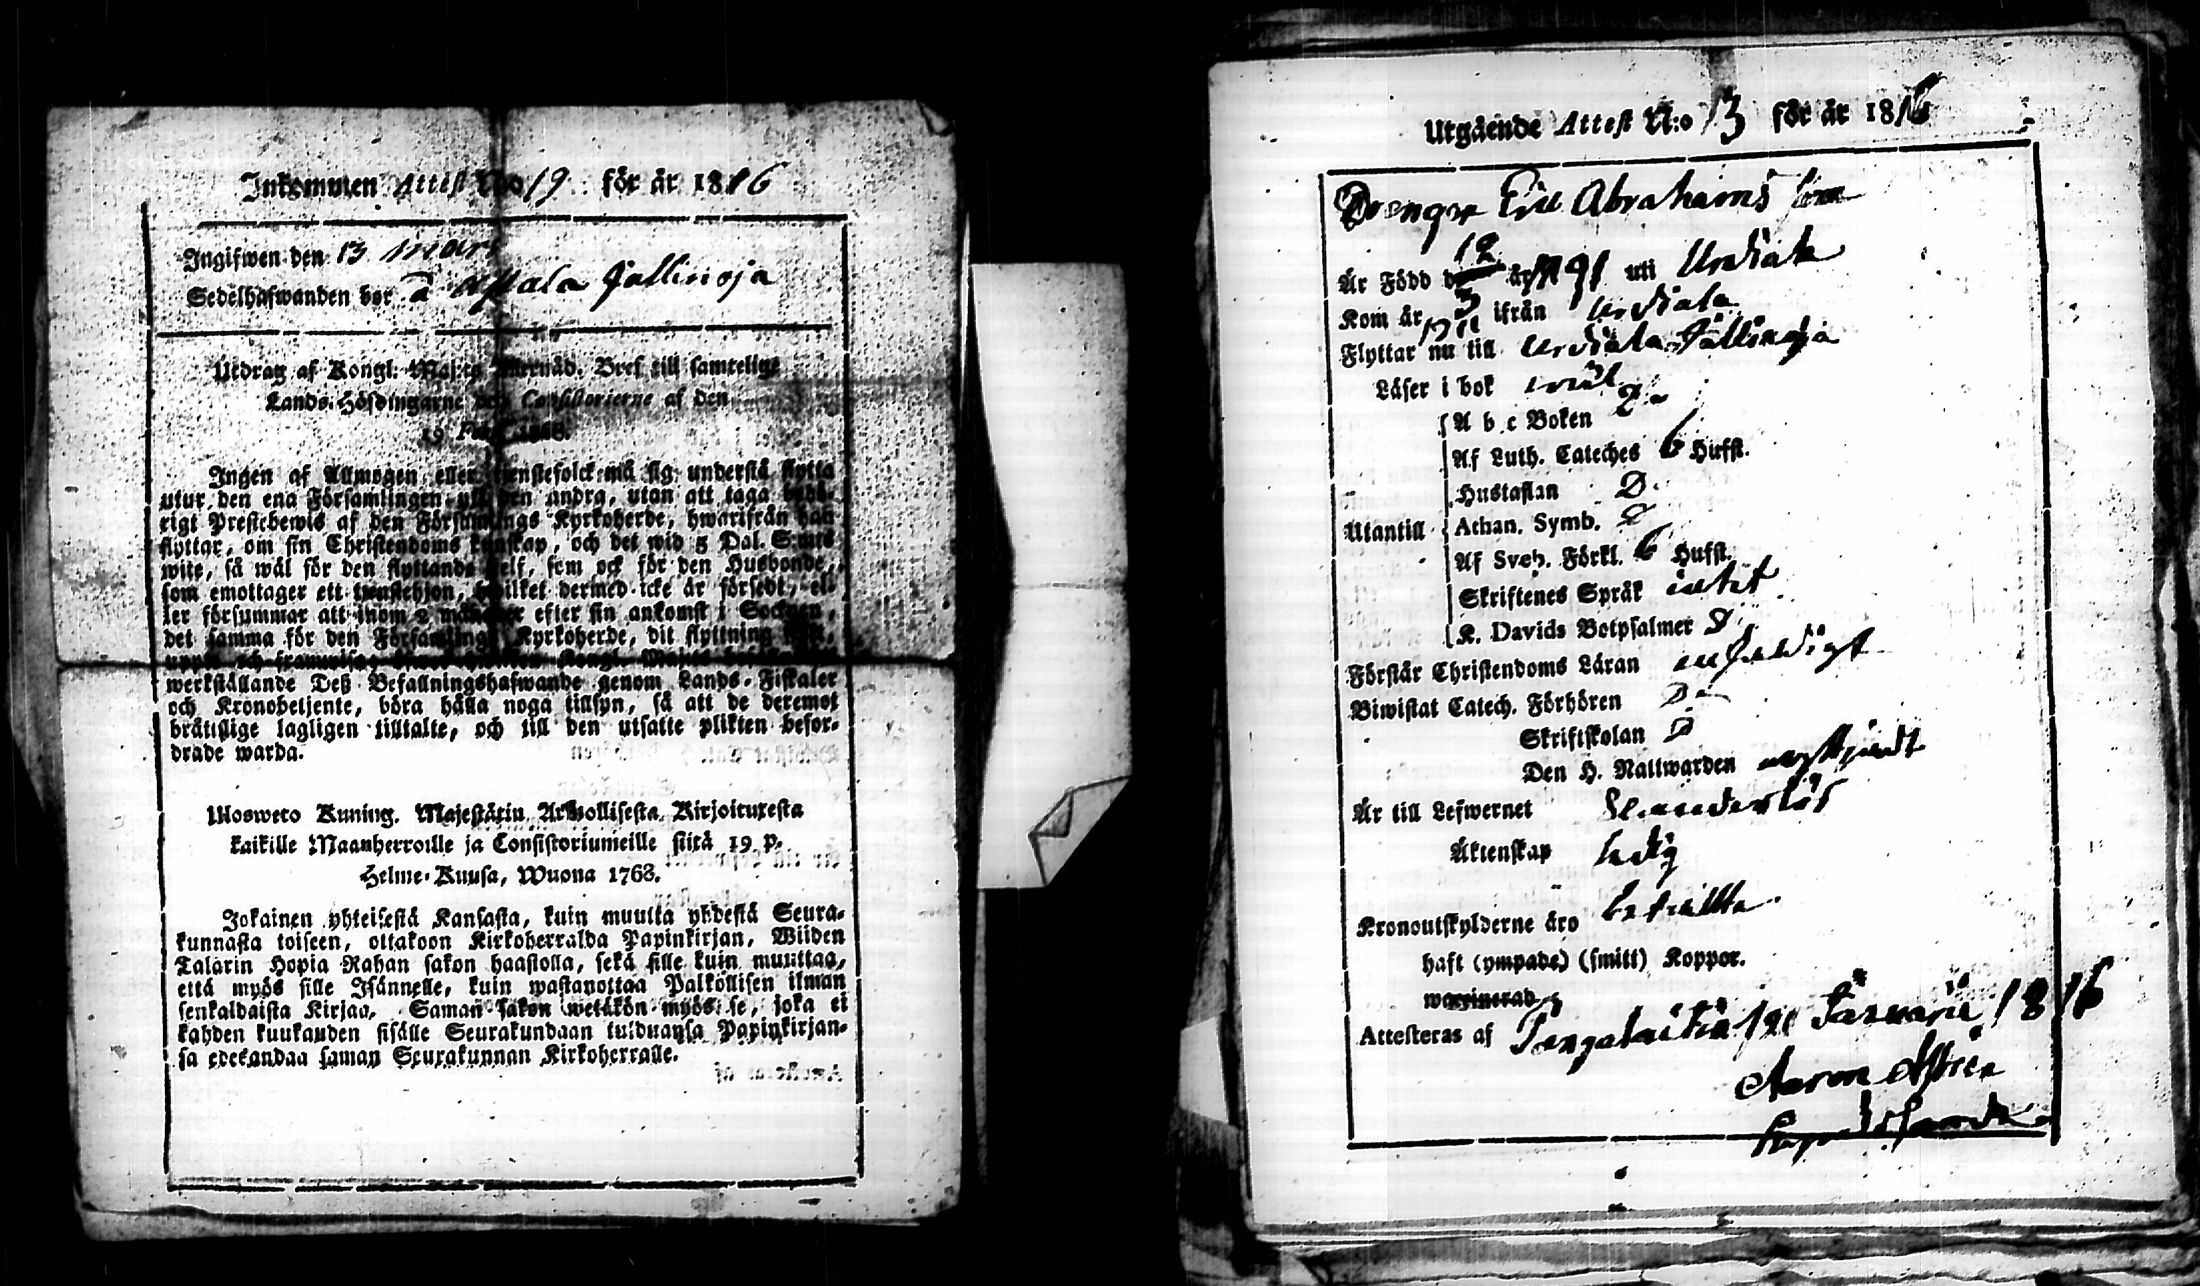 Inkommen Attest N:o 19 för år 1816
Ingifwen den 13 mars
Sedelhafwanden bor å Askala Jallinoja
Utdrag af Kongl: Maj:ts Allernåd. Bref till samtelige
Lands-Höfdingarne och Consistorierne af den
19 Febr.
Ingen af Allmogen eller tjenstefolck må sig understå flytta
utur den ena Församlingen uti den andra, utan att taga behö-
rigt Prestebewis af den Församlings Kyrkoherde, hwarifrån han
flyttar, om sin Christendoms kunskap, och det wid 5 Dal. S:mts
wite, så wäl för den flyttande self, som ock för den Husbonde,
som emottager ett tjenstehjon, hwilket dermed icke är försedt, el-
ler försummar att inom 2 månader efter sin ankomst i Socknen,
det samma för den Församlings Kyrkoherde, dit flyttning
werkställande Deß Befallningshafwande genom Lands-Fiskaler
och Kronobetjente, böra hålla noga tillsyn, så att de deremot
bråttslige lagligen tilltalte, och till den utsatte plikten befor-
drade warda.
Ulosweto Kuning. Majestätin Armollisesta Kirjoituxesta
kaikille Maanherroille ja Consistoriumeille siitä 19 p.
Helme-Kuusa, Wuona 1768.
Jokainen yhteisestä Kansasta, kuin muutta yhdestä Seura-
kunnasta toiseen, ottakoon Kirkoherralda Papinkirjan, Wiiden
Talarin Hopia Rahan sakon haastolla, sekä sille kuin muuttaa,
että myös sille Isännelle, kuin wastanottaa Palkollisen ilman
senkaldaista Kirjaa. Saman sakon wetäkön myös se, joka ei
kahden kuukauden sisälle Seurakundaan tulduansa Papinkirjan-
sa edesandaa saman Seurakunnan Kirkoherralle.
Utgående Attest N:o 13 för år 1816
Drengen Eric Abrahams son
Är Född d 12 år 1791 uti Urdiala
Kom år 13 ifrån Urdiala
Flyttar nu till Urdiala Jallinoja
Läser i bok wäl
A b c Boken D
Af Luth. Cateches 6 Hufst.
Hustaflan D
Utantill Athan. Symb. D
Af Sveb. Förkl. 6 Hufst.
Skriftenes Språk intet
K. Davids Botpsalmer D
Förstår Christendoms Läran enfaldigt
Biwistat Catech. Förhören D
Skriftskolan D
Den H. Nattwarden nyttjandt
Är till Lefwernet Klanderlös
Äktenskap ledig
Kronoutskylderne äro betallta
haft (ympade) (smitt) Koppor.
waccinerad
Attesteras af Tengalaitila Januarii 1816
Aaron